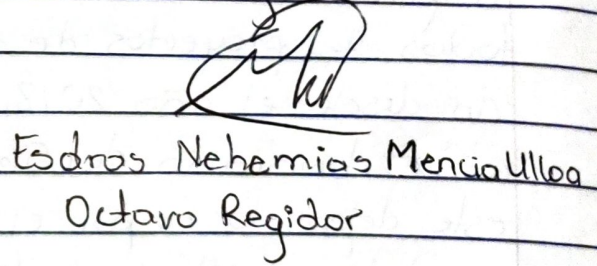 Esdras Nehemias Mencia Ulloa
Octavo Regidor